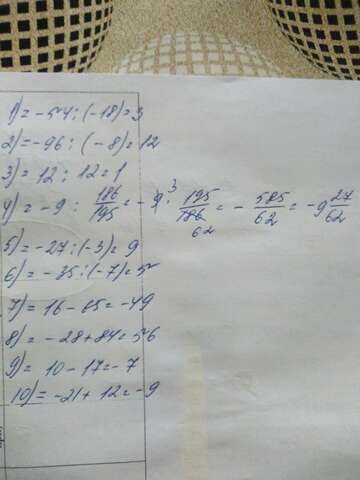 1) = -54 : (-18) = 3
2) = -96 : (-8) = 12
3) = 12 : 12 = 1
4) = -9 : 186/195 = -9 · 3 195/186 62 = - 585/62 = -9 27/62
5) = -27 : (-3) = 9
6) = -35 : (-7) = 5
7) = 16 - 65 = -49
8) = -28 + 84 = 56
9) = 10 - 17 = -7
10) = -21 + 12 = -9